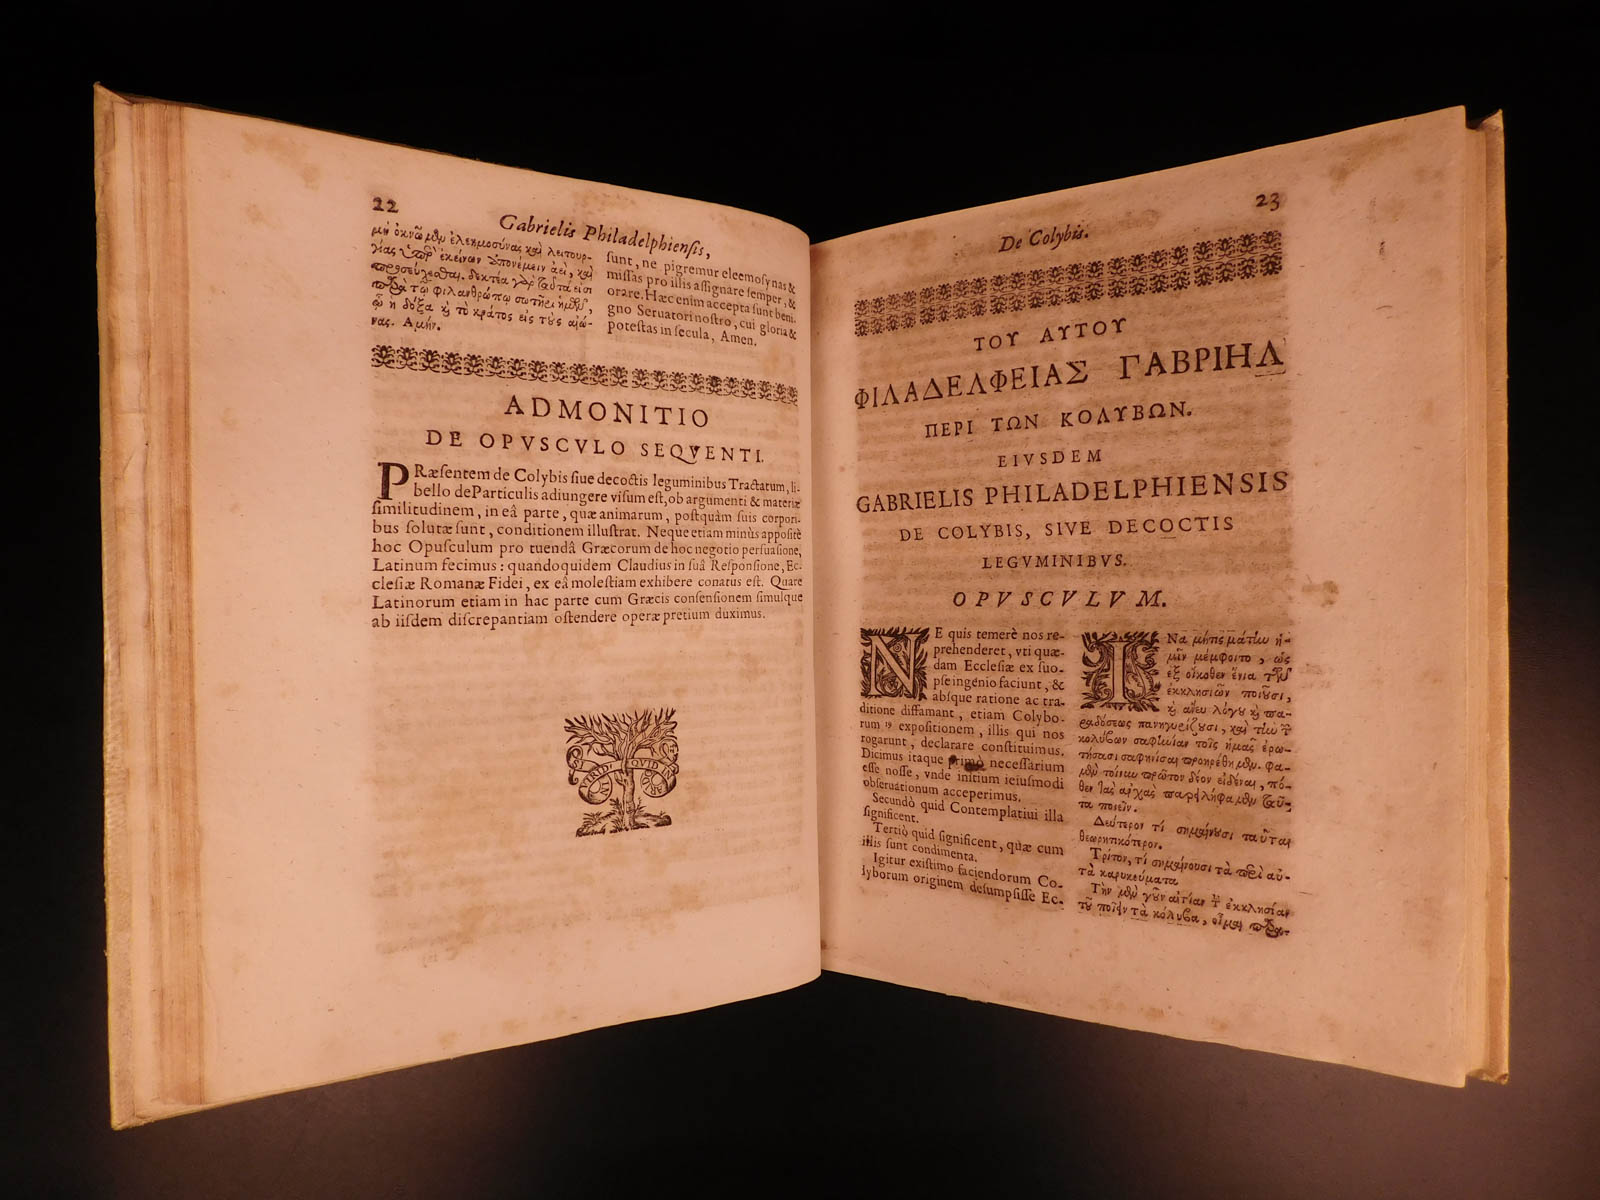 22
Gabrielis Philadelphiensis,
μὴ ὀκνῶμεν ἐλεημοσύνας καὶ λειτουρ-
γίας ὑπὲρ ἐκείνων ἀπονέμειν ἀεὶ, καὶ
προσεύχεσθαι. δεκτέα γὰρ ταῦτα εἰσι
τῷ φιλανθρώπῳ σωτῆρι ἡμῶν,
ᾧ ἡ δόξα καὶ τὸ κράτος εἰς τοὺς αἰῶ-
νας. Αμήν.
sunt, ne pigremur eleemosynas &
missas pro illis assignare semper, &
orare. Hæc enim accepta sunt beni-
gno Seruatori nostro, cui gloria &
potestas in secula, Amen.
ADMONITIO
DE OPVSCVLO SEQVENTI.
PRæsentem de Colybis siue decoctis leguminibus Tractatum, li-
bello de Particulis adiungere visum est, ob argumenti & materiæ
similitudinem, in eâ parte, quæ animarum, postquàm suis corpori-
bus solutæ sunt, conditionem illustrat. Neque etiam minùs appositè
hoc Opusculum pro tuendâ Græcorum de hoc negotio persuasione,
Latinum fecimus: quandoquidem Claudius in suâ Responsione, Ec-
clesiæ Romanæ Fidei, ex eâ molestiam exhibere conatus est. Quare
Latinorum etiam in hac parte cum Græcis consensionem simulque
ab iisdem discrepantiam ostendere operæ pretium duximus.
SI IN VIRIDI QVID IN ARIDO
23
De Colybis.
ΤΟΥ ΑΥΤΟΥ
ΦΙΛΑΔΕΛΦΕΙΑΣ ΓΑΒΡΙΗΛ
ΠΕΡΙ ΤΩΝ ΚΟΛΥΒΩΝ.
EIVSDEM
GABRIELIS PHILADELPHIENSIS
DE COLYBIS, SIVE DECOCTIS
LEGVMINIBVS.
OPVSCVLVM.
NE quis temerè nos re-
prehenderet, vti quæ-
dam Ecclesiæ ex suo-
pse ingenio faciunt, &
absque ratione ac tra-
ditione diffamant, etiam Colybo-
rum 19 expositionem, illis qui nos
rogarunt, declarare constituimus.
Dicimus itaque primò necessarium
esse nosse, vnde initium ieiusmodi
obseruationum acceperimus.
Secundò quid Contemplatiui illa
significent.
Tertiò quid significent, quæ cum
illis sunt condimenta.
Igitur existimo faciendorum Co-
lyborum originem desumpsisse Ec-
ΙΝα μήτις μάτην ἡ-
μῖν μέμφοιτο, ὡς
ἐξ οἴκοθεν ἔνια τῶν
ἐκκλησιῶν ποιοῦσι,
καὶ ἄνευ λόγου καὶ πα-
ραδόσεως πανηγυρίζουσι, καὶ τὴν τῶν
κολύβων σαφήνειαν τοῖς ἡμᾶς ἐρω-
τήσασι σαφηνίσαι προῃρήθημεν. φα-
μὲν τοίνυν πρῶτον δέον εἰδέναι, πό-
θεν τὰς ἀρχὰς παρειλήφαμεν ταῦ-
τα ποιεῖν.
Δεύτερον τί σημαίνουσι ταῦτα
θεωρητικώτερον.
Τρίτον, τί σημαίνουσι τὰ περὶ αὐ-
τὰ καρυκεύματα
Τὴν μὲν γοῦν αἰτίαν τὴν ἐκκλησίαν
τοῦ ποιεῖν τὰ κόλυβα, οἶμαι παρα-